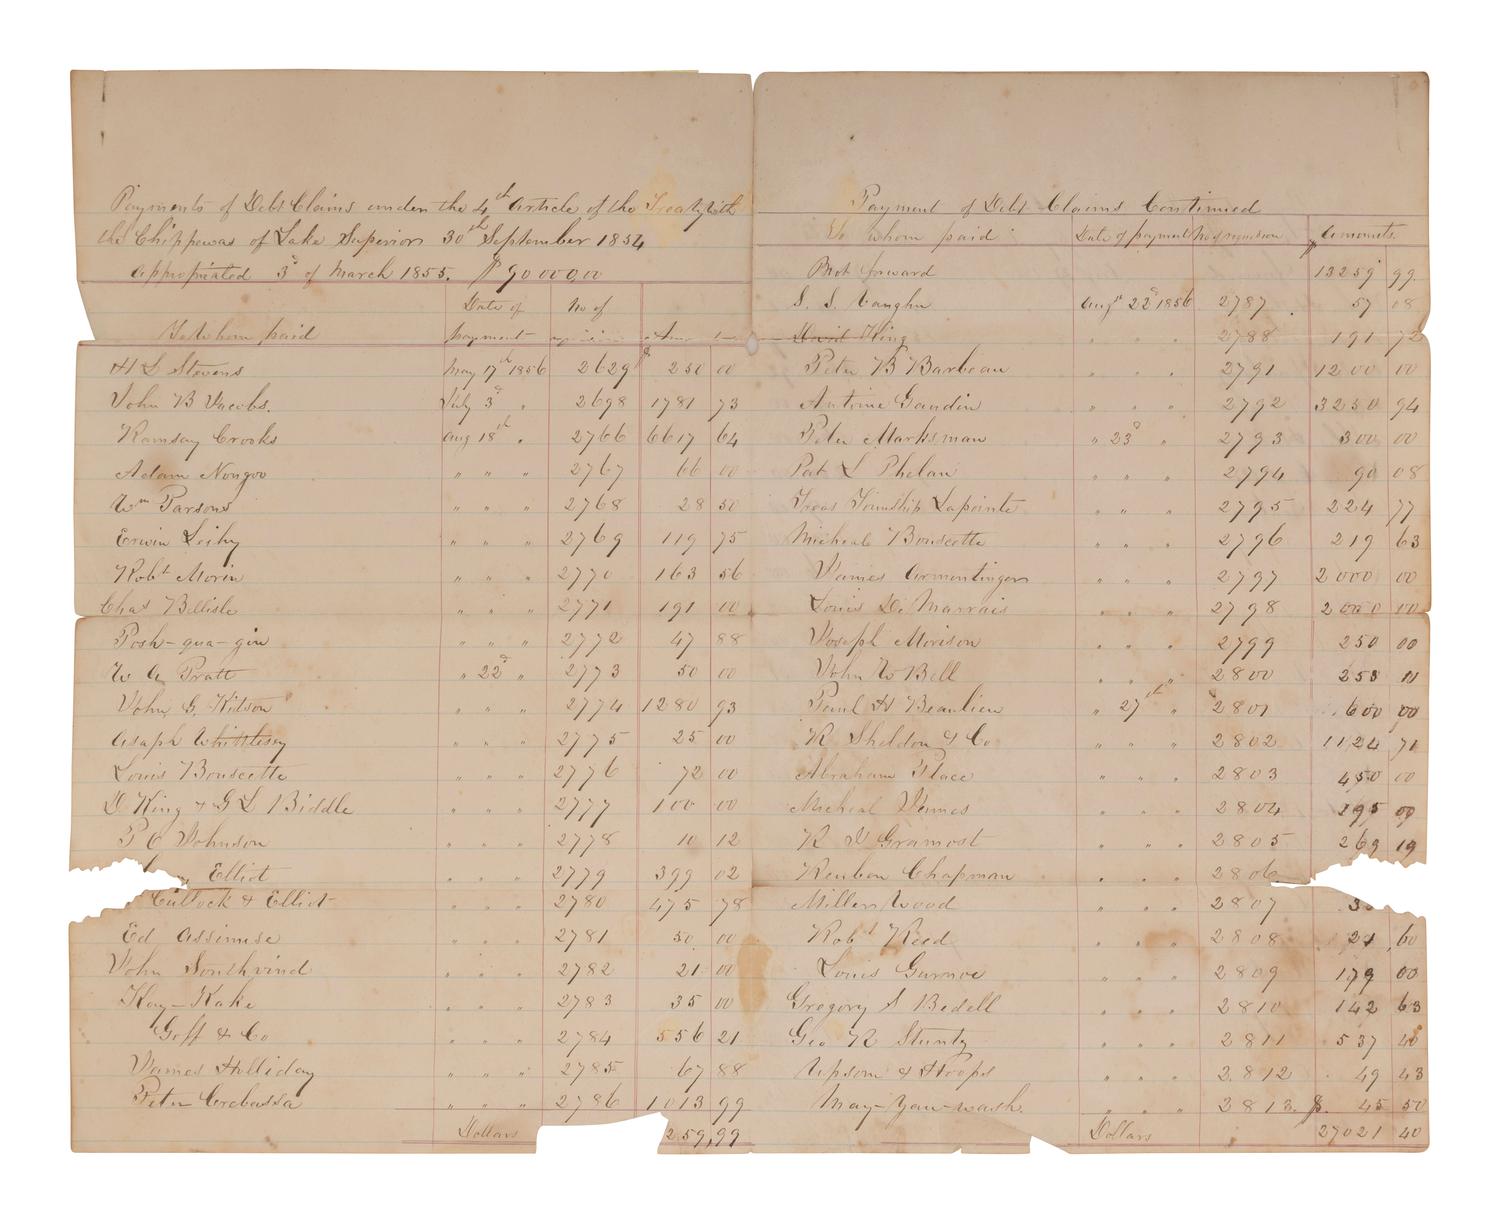 Payments of Debt Claims under the 4th Article of the Treaty with
the Chippewas of Lake Superior 30th September 1854
appropriated 3d of March 1855. $90000,00
To whom paid Date of payment No of
H S Stevens May 17th 1856 2629 $ 250 00
John B Jacobs. July 3d " 2698 1781 73
Ramsay Crooks Aug 18th " 2766 6617 64
Adam Nongoo " " " 2767 66 00
Wm Parsons " " " 2768 28 50
Erwin Leihy " " " 2769 119 75
Robt Morin " " " 2770 163 56
Chas Bellisle " " " 2771 191 00
Posh-qua-gin " " " 2772 47 88
W A Pratt " 22d " 2773 50 00
John G. Kitson " " " 2774 1280 93
Asaph Whittlesey " " " 2775 25 00
Louis Bouscette " " " 2776 72 00
D King & G L Biddle " " " 2777 100 00
P C Johnson " " " 2778 10 12
Elliot " " " 2779 399 02
Cullock & Elliot " " " 2780 475 78
Ed Assinise " " " 2781 50 00
John Southvind " " " 2782 21 00
Kay-Kake " " " 2783 35 00
Goff & Co " " " 2784 556 21
James Halliday " " " 2785 67 88
Peter Crebassa " " " 2786 1013 99
Dollars 259,99
Payment of Debt Claims Continued
To whom paid Date of payment No of requisition Amounts.
Brot forward 13259 99
S. S. Vaughn Augst 22d 1856 2787 57 08
David King " " " 2788 191 72
Peter B Barbeau " " " 2791 1200 00
Antoine Gaudin " " " 2792 3250 94
Peter Marksman " 23d " 2793 300 00
Pat L Phelan " " " 2794 90 08
Treas Township Lapointe " " " 2795 224 77
Micheal Bouscette " " " 2796 219 63
James Armontinger " " " 2797 2000 00
Louis De Marrais " " " 2798 2000 00
Joseph Morison " " " 2799 250 00
John W Bell " " " 2800 253 11
Paul H Beaulieu " 27th " 2801 600 00
R Sheldon & Co " " " 2802 1124 71
Abraham Place " " " 2803 450 00
Micheal James " " " 2804 295 00
R D Gramost " " " 2805 269 19
Reuben Chapman " " " 2806
Miller Wood " " " 2807
Robt Reed " " " 2808 21 60
Louis Gurnoe " " " 2809 179 00
Gregory S Bedell " " " 2810 142 63
Geo R Stuntz " " " 2811 537 45
Upson & Hoops " " " 2812 49 43
May-Yaw-wash. " " " 2813. $ 45 50
Dollars 27021 40